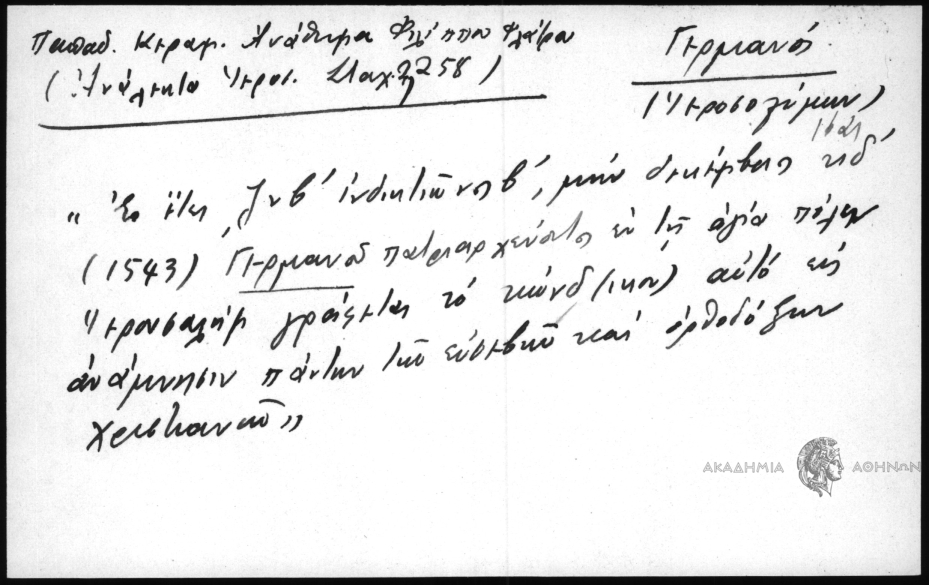 Παπαδ. Κεραμ. Ανάθημα Φιλίππου
(Ανάλεκτα Ιεροσ. Σταχ. 258)
Γερμανός
(Ιεροσολύμων)
" Ἐν ἔτει ζνβ' ἰνδικτιῶνος β', μηνὶ δεκεμβρίῳ κδ'
(1543) Γερμανοῦ πατριαρχεύοντος ἐν τῇ ἁγίᾳ πόλει
Ιερουσαλήμ γράφεται τὸ κώνδ(ικον) αὐτό εἰς
ἀνάμνησιν πάντων τῶν εὐσεβῶν καὶ ὀρθοδόξων
χριστιανῶν"
ΑΚΑΔΗΜΙΑ ΑΘΗΝΩΝ